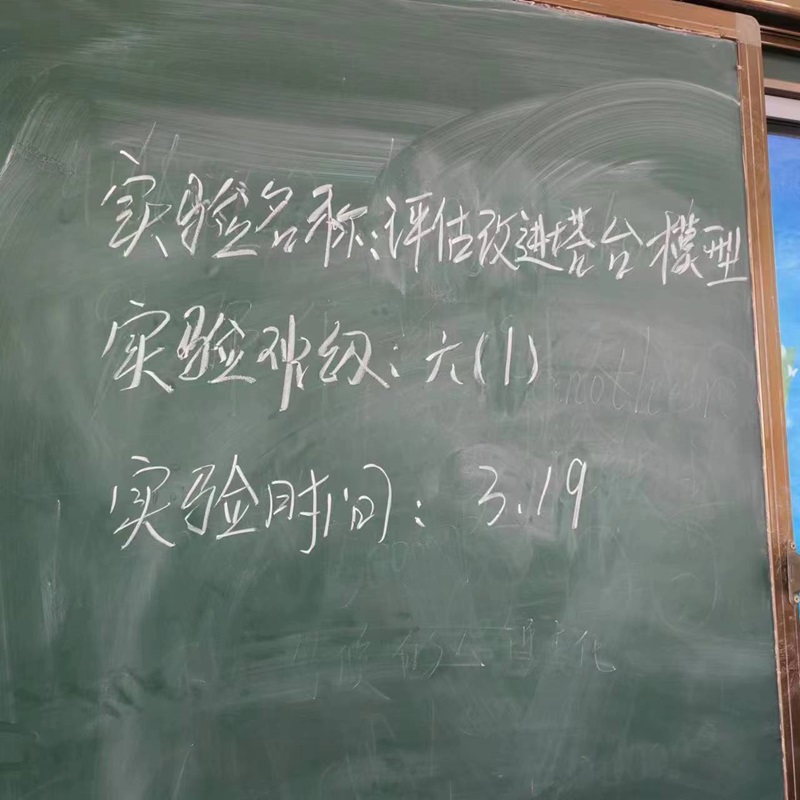 实验名称:评估改进塔台模型
实验班级:六(1)
实验时间:3.19